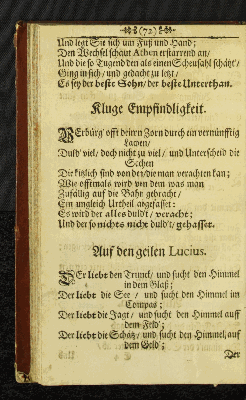 (72)
Und legt Sie sich um Fuß und Hand;
Den Wechsel schaut Athen erstarrend an/
Und die so Tugend den als einen Scheusahl schätzt/
Ging in sich/ und gedacht zu letzt/
Es sey der beste Sohn/ der beste Unterthan.
Kluge Empfindligkeit.
Verbürg offt deinen Zorn durch ein vernünfftig
Lachen/
Duld' viel/ doch nicht zu viel/ und Unterscheid die
Sachen
Die kitzlich sind von der/die man verachten kan;
Wie offtmals wird von dem was man
Zufällig auf die Bahn gebracht/
Ein ungleich Urtheil abgefasset:
Es wird der alles duld't/ veracht;
Und der so nichts nicht duld't/ gehasset.
Auf den geilen Lucius.
DEr liebt den Trunck/ und sucht den Himmel
in dem Glaß;
Der liebt die See / und sucht den Himmel im
Compas;
Der liebt die Jagt/ und sucht den Himmel auff
dem Feld;
Der liebt die Schätz/ und sucht den Himmel auf
dem Geld;
Der